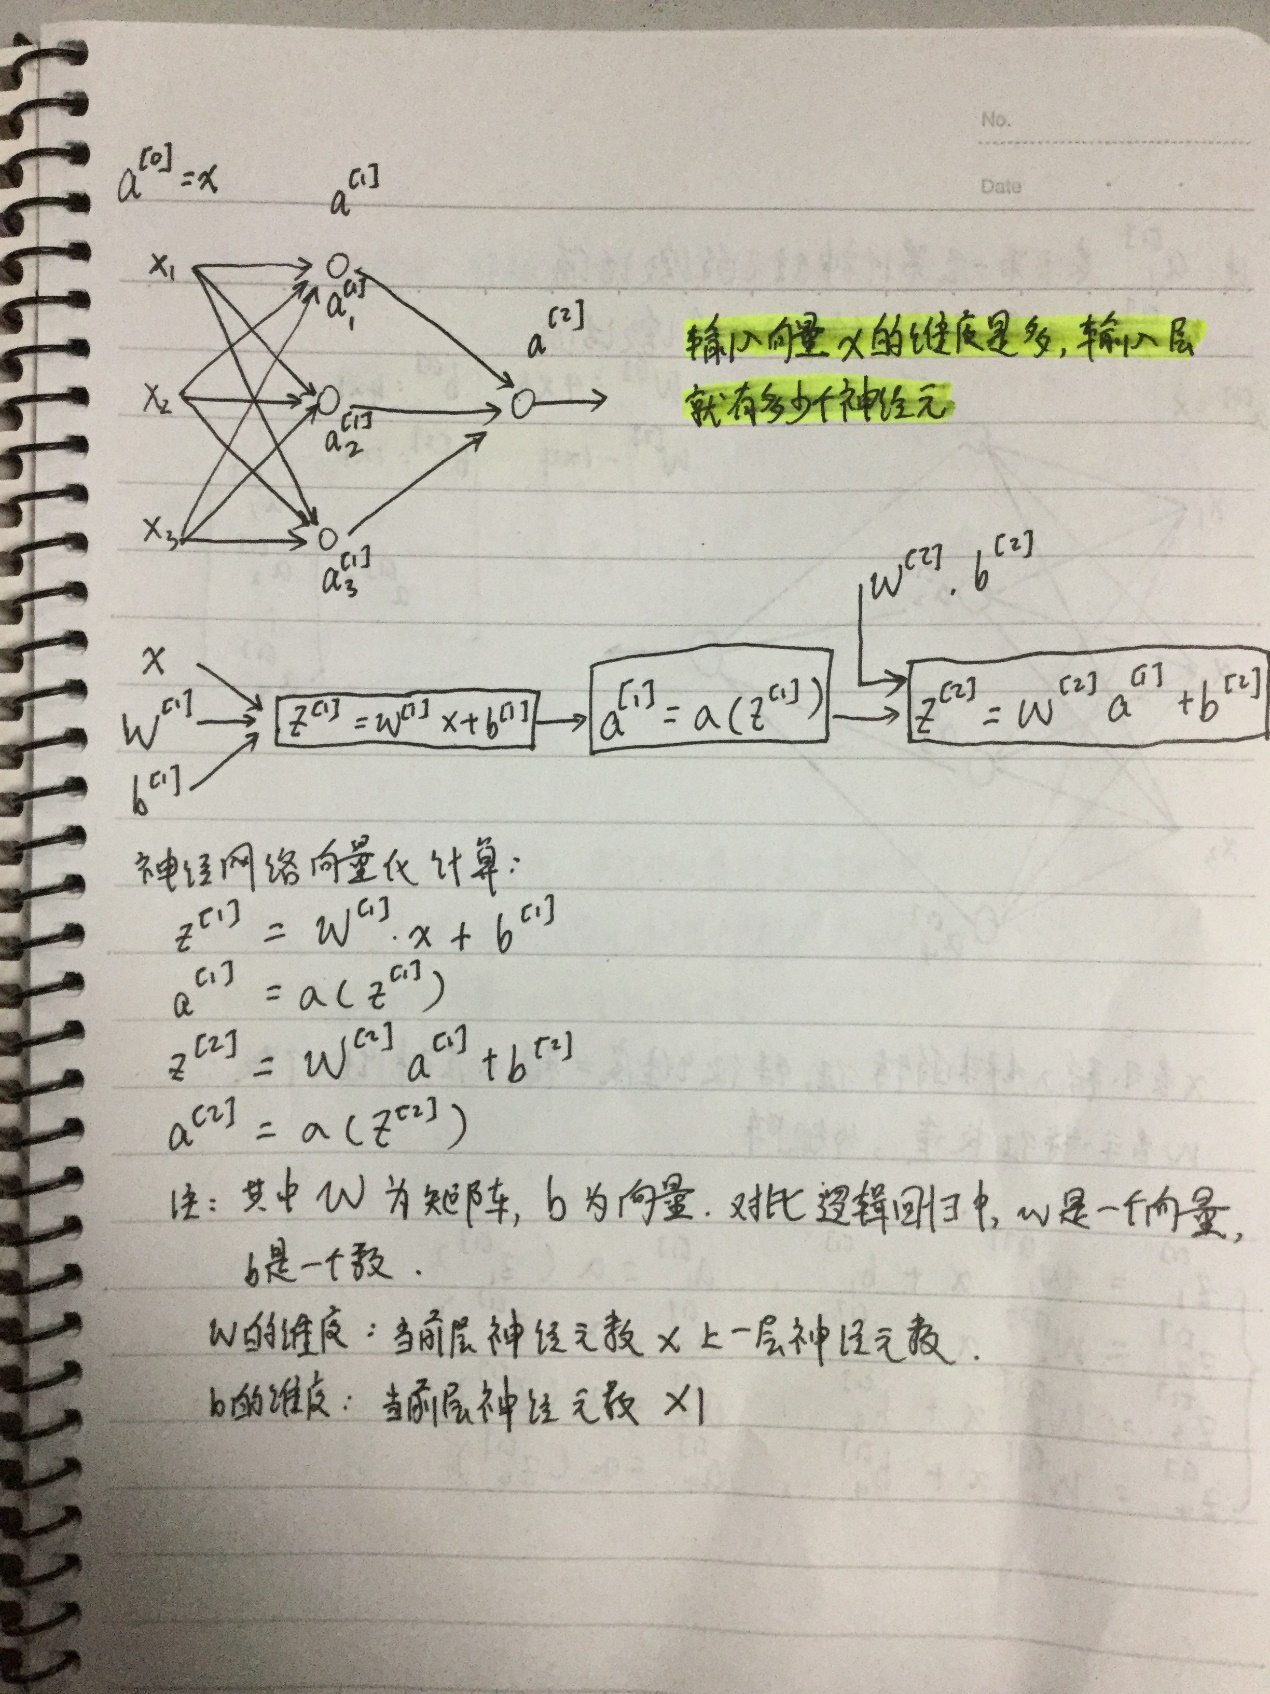 No.
Date
a^[0] = x
a^[1]
x₁
a₁^[1]
a^[2]
输入向量x的维度是多,输入层
就有多少个神经元
x₂
a₂^[1]
x₃
a₃^[1]
w^[2] . b^[2]
x
W^[1]
b^[1]
z^[1] = w^[1] x + b^[1]
a^[1] = a(z^[1])
z^[2] = w^[2] a^[1] + b^[2]
神经网络向量化计算:
z^[1] = W^[1] · x + b^[1]
a^[1] = a(z^[1])
z^[2] = W^[2] a^[1] + b^[2]
a^[2] = a(z^[2])
注: 其中W为矩阵, b为向量. 对比逻辑回归中, w是一个向量,
b是一个数.
W的维度: 当前层神经元数 × 上一层神经元数.
b的维度: 当前层神经元数 ×1